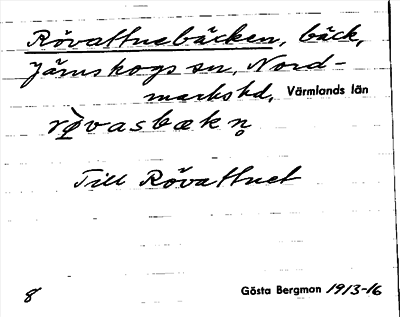 Rövattnebäcken, bäck,
Järnskogs sn, Nord-
marks hd, Värmlands län
Till Rövattnet
8 Gösta Bergman 1913-16